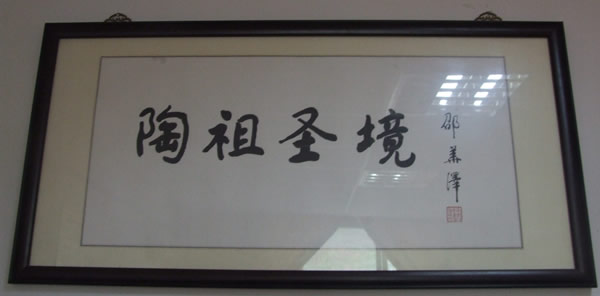 陶祖圣境
邵華澤